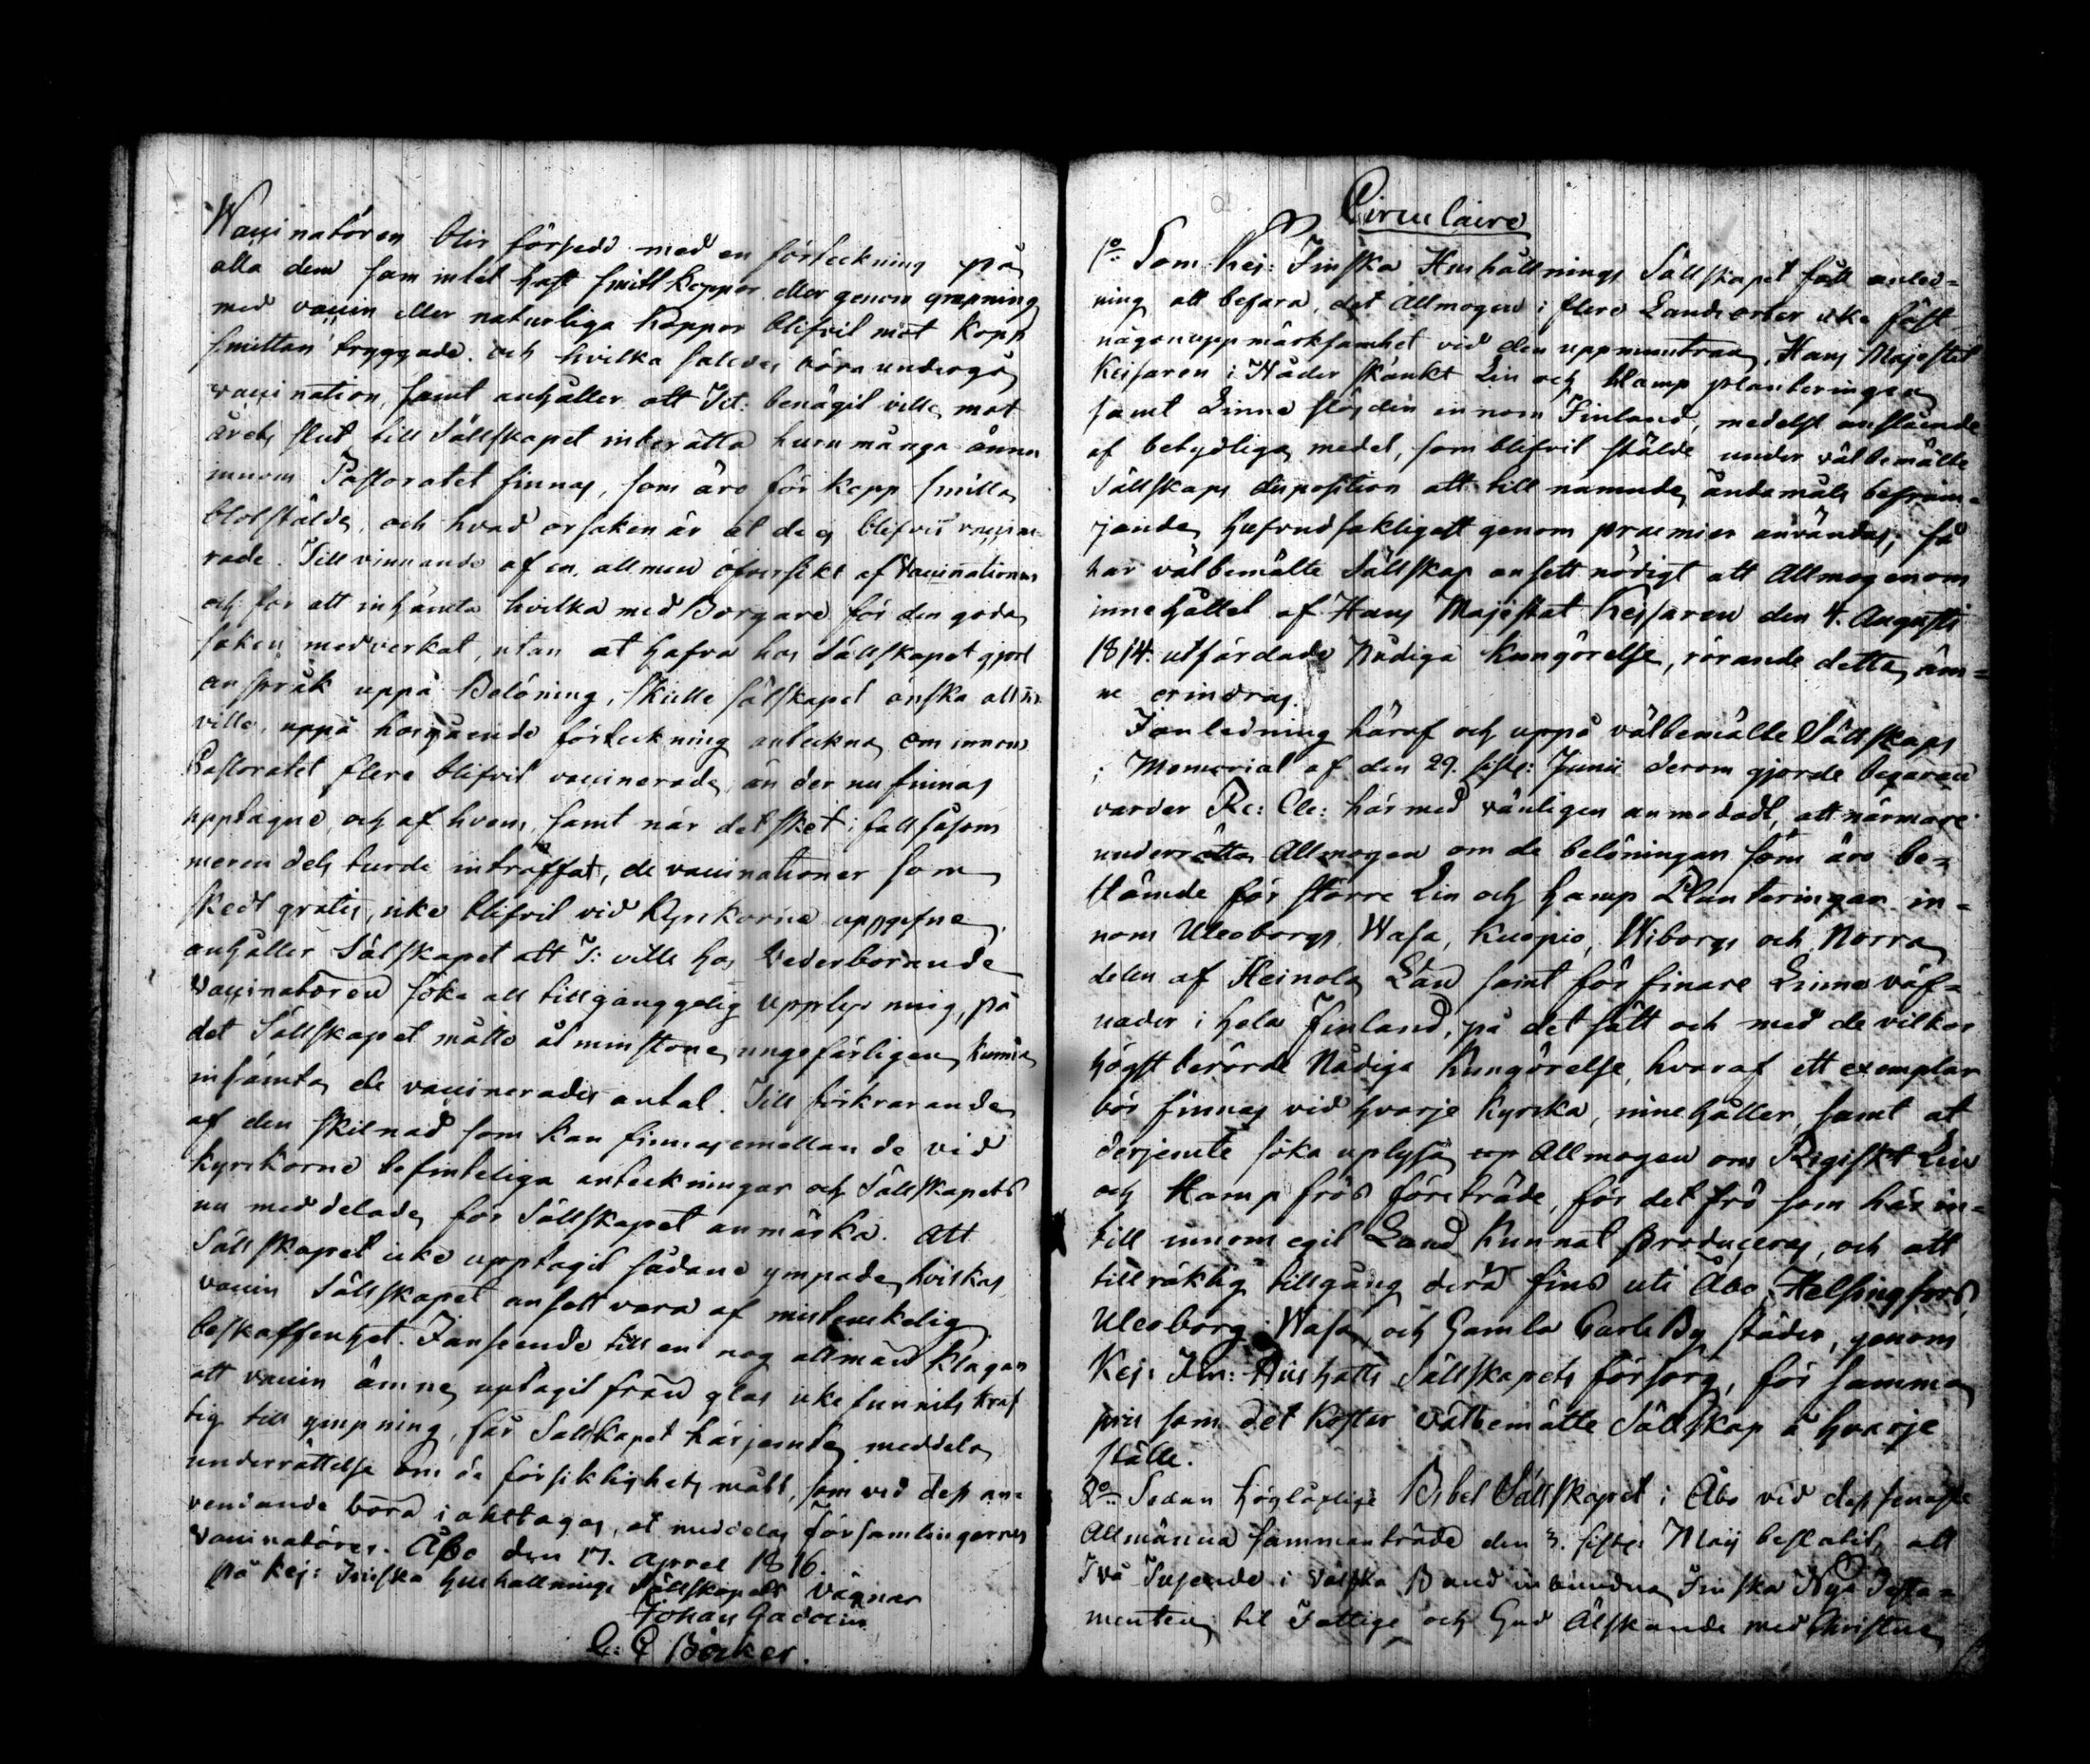 Vaccinatören blir försedd med en förteckning på
alla dem som intet haft Smittkoppor, eller genom ympning
med vaccin eller naturliga koppor blifvit mot Kopp
smittan tryggade, och hvilka således böra undergå
vaccination, samt anhåller att Tit: benägit ville mot
årets slut till Sällskapet inberätta huru många ännu
innom Pastoratet finnas, som äro för kopp smitta
blotstälde, och hvad orsaken är at de ej blifvit vaccine-
rade. Till vinnande af en allmen öfversikt af Vaccinationen
och för att inhämta hvilka med Borgare för den goda
saken medverkat, utan at hafva hos Sällskapet gjort
anspråk uppå Belöning, skulle Sälskapet önska att Tit
ville, uppå hosgående förteckning anteckna om innom
Pastoratet flere blifvit vaccinerade, än der nu finnas
upptagne, och af hvem, samt när det sket i fall såsom
meren dels turde inträffat, de vaccinationer som
skedt gratis, icke blifvit vid Kyrkorne uppgifne,
anhåller Sälskapet att T: ville hos Vederbörande
Vaccinatören söka all tillgänggelig upplysning, på
det Sällskapet måtte åtminstone ungefärligen kunna
inhämta de vaccinerades antal. Till förkrarande
af den skilnad som kan finnas emellan de vid
Kyrckorne befinteliga anteckningar och Sällskapets
nu meddelade, för Sällskapet anmärka. Att
Sällskapet icke upptagit sådane ympade, hvilkas
vaccin Sällskapet ansett vara af misstenkelig
beskaffenhet. I anseende till en nog allmän klagan
att vaccin ämne uptagit från glas icke funnits kraf
tig till ympning, får Sällskapet härjemte meddela
underrättelse om de försiktighets mått, som vid dess an-
vendande böra i akttagas, at meddelas Församlingarnes
Vaccinatörer. Åbo den 17. Aprel 1816.
På Kej: Finska Hushållnings Sällskapets vägnar
Johan Gadolin
C: C Böcker.
Circulaire
1o Som Kej: Finska Hushållnings Sällskapet fått anled-
ning att befara, det Allmogen i flere Landsorter icke fäst
någon uppmärksamhet vid den uppmuntran, Hans Majestet
Keisaren i Nåder skänkt Lin och Hamp planteringen
samt Linne slöjden innom Finland, medelst anslående
af betydliga medel, som blifvit stälde under välbemälte
Sällskaps disposition att till nämnde ändamåls befräm-
jande, hufvudsakligast genom præmier användas; så
har välbemälte Sällskap ansett nödigt att Allmogen om
innehållet af Hans Majestät Keisaren den 4. Augusti
1814. utfärdade Nådiga Kungörelse, rörande detta äm-
ne erindras.
I anledning häraf och uppå välbemälte Sällskaps
i Memorial af den 29. sistl: Junii derom gjorde begäran
varder Re: Cle: härmed vänligen anmodadt, att närmare
underrätta Allmogen om de belöningar som äro be-
stämde för större Lin och Hamp Planteringar in-
nom Uleoborgs, Wasa, Kuopio, Wiborgs och Norra
delen af Heinola Län samt för finare Linne väf-
nader i hela Finland, på det sätt och med de vilkor
högst berörde Nådiga Kungörelse, hvaraf ett exemplar
bör finnas vid hvarje Kyrcka, innehåller, samt at
derjemte söka uplysa Allmogen om Rigiskt Lin
och Hamp frös företräde, för det frö som här in-
till innom egit Land kunnat produceras, och att
tillräklig tillgång deraf fins uti Åbo, Helsingfors,
Uleoborg, Wasa och Gamla Carle By städer, genom
Kej: Fin: Hushålls Sällskapets försorg, för samma
pris som det kostar välbemälte Sällskap å hvarje
ställe.
2o Sedan Höglåflige Bibel Sällskapet i Åbo vid dess senaste
Allmänna sammanträde den 3. sistl: Maij beslutit, att
Två Tusende i Valska Band inbundna Finska Nya Testa-
menten til Fattige och Gud Älskande med Christne